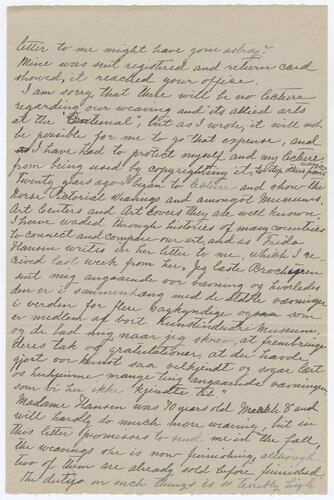 letter to me might have gone astray?
Mine was sent registered and return card
showed, it reached your office.
I am sorry that there will be no lecture
regarding our weaving and its allied arts
at the " but as I wrote, it will not
be possible for me to go that expense, and
as I have had to protect myself and my lecture
from being used by copyrighting it, to stop them from
Twenty years ago I began to lecture and show the
Norse Pictorial Weavings and amongst Museums,
Art Centers and Art covers they are well known.
I have waded through histories of many countries
to connect and compare our art, and as Frida
Hansen writes in her letter to me, which I re
ceived last week from her, Jeg læste Brochuren
sent mig angaaende vor vævning og hvorledes
den er i sammenhang med de ældste vævninger
i verden for flere sagkyndige ogsaa som
er medlem af vort Kunstindustri Museum,
og de bad mig naar jeg skrev, at frembringe
deres tak og gratulationer, at der havde
gjort vor kunst saa velkjendt og sogar lært
os herhjemme mange ting angaaende vævningen,
som vi her ikke kjendte til"
Madame Hansen was 70 years old March 8 and
will hardly do much more weaving, but in
this letter promises to send me in the fall,
the weavings she is now finishing, although
two of them are already sold before finished.
The duties on such things is so terribly high